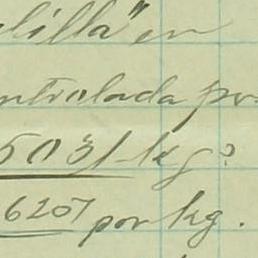 illa" en
ntrolada por
5031 kg?
6207 por kg.